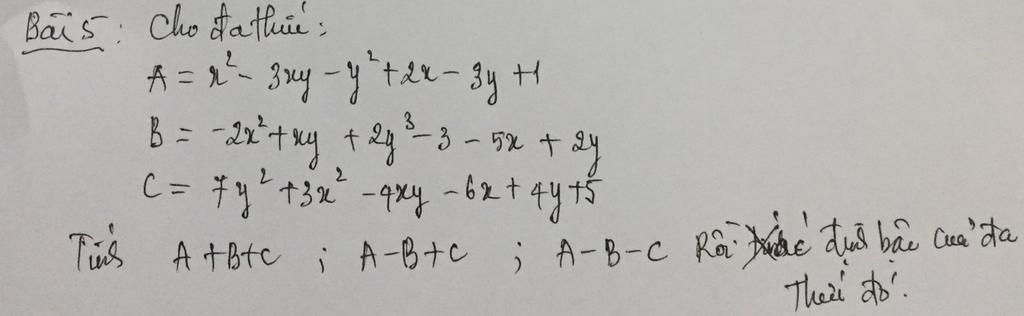 Bài 5: Cho đa thức:
A = x² - 3xy - y² + 2x - 3y + 1
B = -2x² + xy + 2y³ - 3 - 5x + 2y
C = 7y² + 3x² - 4xy - 6x + 4y + 5
Tính A+B+C ; A-B+C ; A-B-C Rồi định bậc của đa
thức đó.